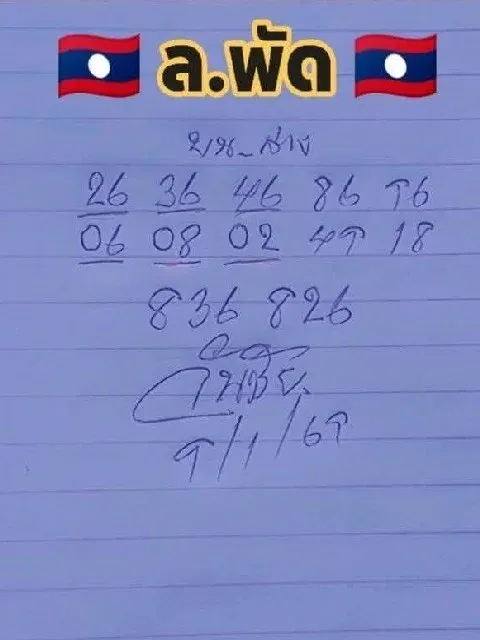 ล.พัด
บน_ล่าง
26 36 46 86 76
06 08 02 47 18
836 826
7/1/67